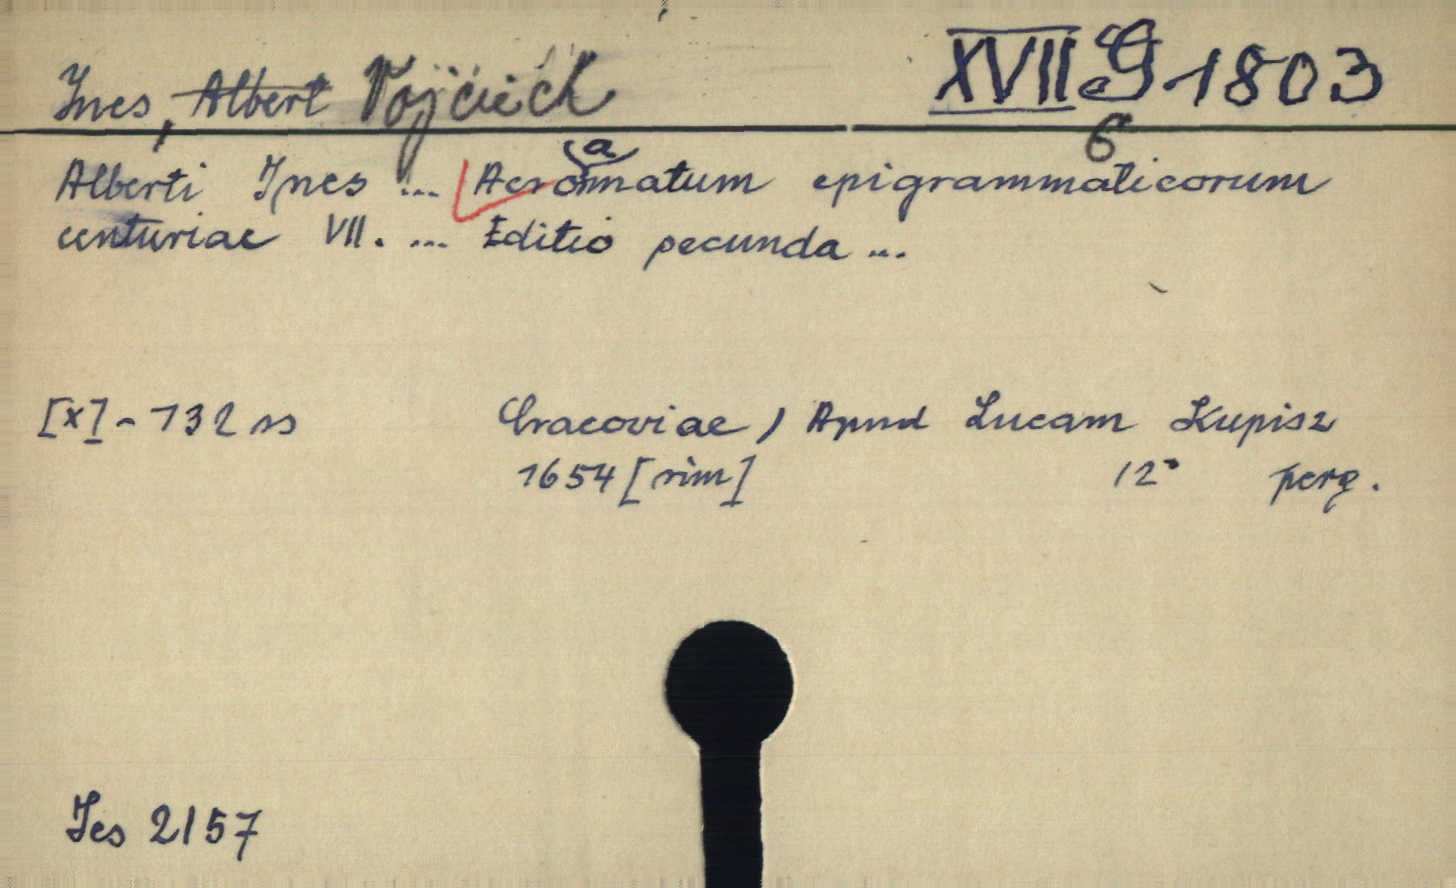 Ines, Albert Vojcieck XVII G-1803
6
Alberti Ines ... Acroamatum epigrammaticorum
centuriae VII. ... Editio secunda ...
[x] - 132 ss Cracoviae, Apud Lucam Kupisz
1654 [rim] 12° perg.
Jes 2157